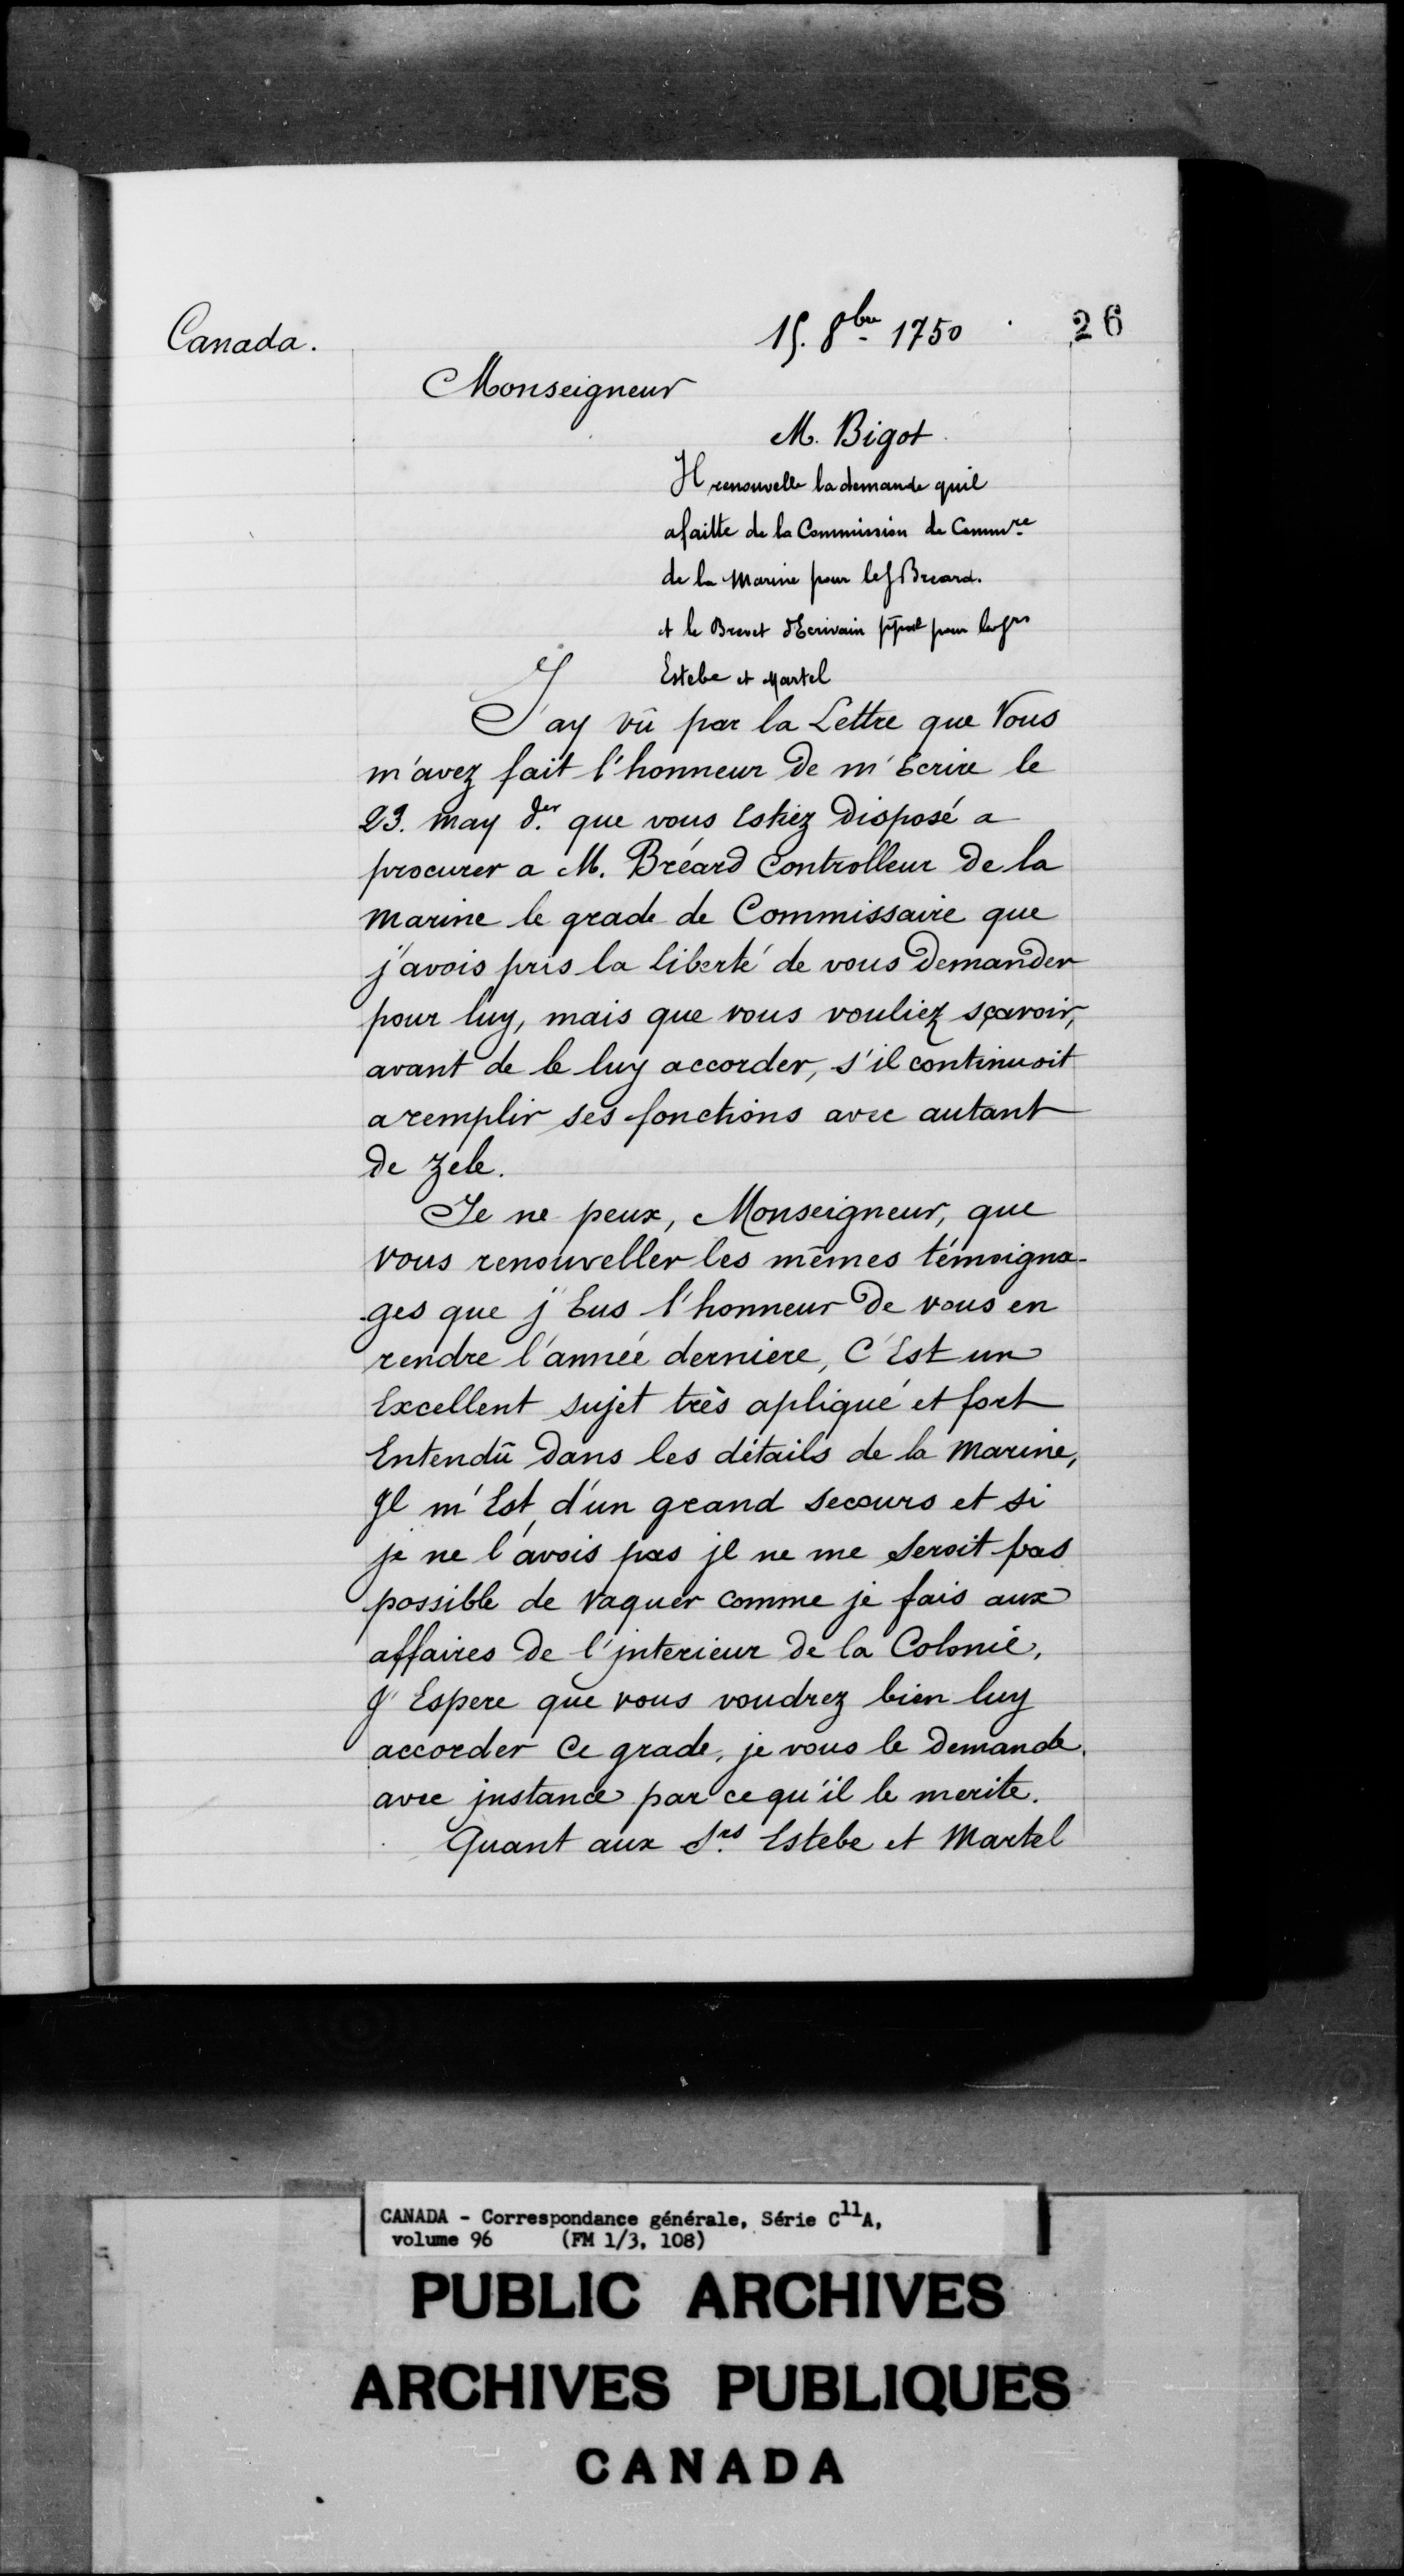 Canada.
15. 8bre 1750
26
Monseigneur
M. Bigot
Il renouvelle la demande quil
a faitte de la Commission de Commre
de la Marine pour le S Breard.
et le Brevet d'Ecrivain ppal pour les Srs
Estebe et Martel
J'ay vû par la Lettre que Vous
m'avez fait l'honneur de m'Ecrire le
23. may der que vous Estiez disposé a
procurer a M. Bréard Controlleur de la
Marine le grade de Commissaire que
j'avois pris la liberté de vous demander
pour luy, mais que vous vouliez sçavoir,
avant de le luy accorder, s'il continuoit
a remplir ses fonctions avec autant
de zele.
Je ne peux, Monseigneur, que
vous renouveller les mêmes témoigna-
ges que j'Eus l'honneur de vous en
rendre l'année derniere, C'Est un
Excellent sujet très apliqué et fort
Entendû dans les détails de la Marine,
Jl m'Est d'un grand secours et si
je ne l'avois pas jl ne me seroit pas
possible de vaquer comme je fais aux
affaires de l'jnterieur de la Colonie,
J'Espere que vous voudrez bien luy
accorder Ce grade, je vous le demande
avec jnstance par ce qu'il le merite.
Quant aux Srs Estebe et Martel
CANADA - Correspondance générale, Série C11A,
volume 96 (FM 1/3, 108)
PUBLIC ARCHIVES
ARCHIVES PUBLIQUES
CANADA